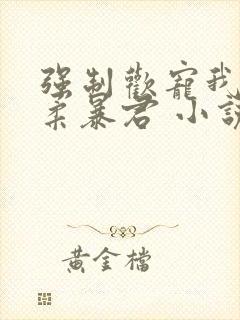 强制歡寵我
柔暴君 小說
黃金檔